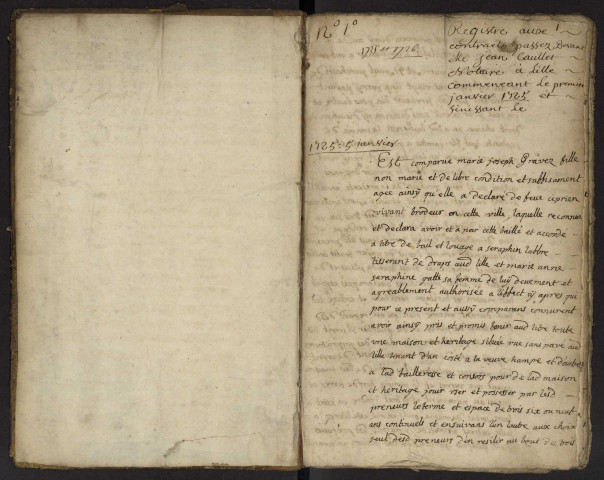 N° 1°
1725 et 1726
Registre aux
contracts passez Devant
Me Jean Caullet
Notaire à Lille
commenceant le premier
janvier 1725 et
finissant le
1725: 5 janvier
Est comparue marie joseph Gravez fille
non marié et de libre condition et suffisament
agée ainsy qu elle a declaré de feue ciprien
vivant brodeur en cette ville, laquelle reconnut
et declara avoir et a par cette baillé et accordé
a titre de bail et louage a seraphin labbe
tisserant de draps aud lille et marie anne
seraphine gatte sa femme de luy deuement et
agreablement authorisée a l'effect cy apres qui
pour ce present et aussy comparans connurent
avoir ainsy pris et promis tenir aud titre toute
une maison et heritage située rue sans pavé aud
lille tenant d'un coté a la veuve hampe et d'autre
a lad bailleresse et contos pour de lad maison
et heritage jouir user et posseser par lesd
preneurs le terme et espace de trois six ou neuf
ans continuels et ensuivans l'un l'autre aux choix
seul desd preneurs d'en resilir au bout de trois